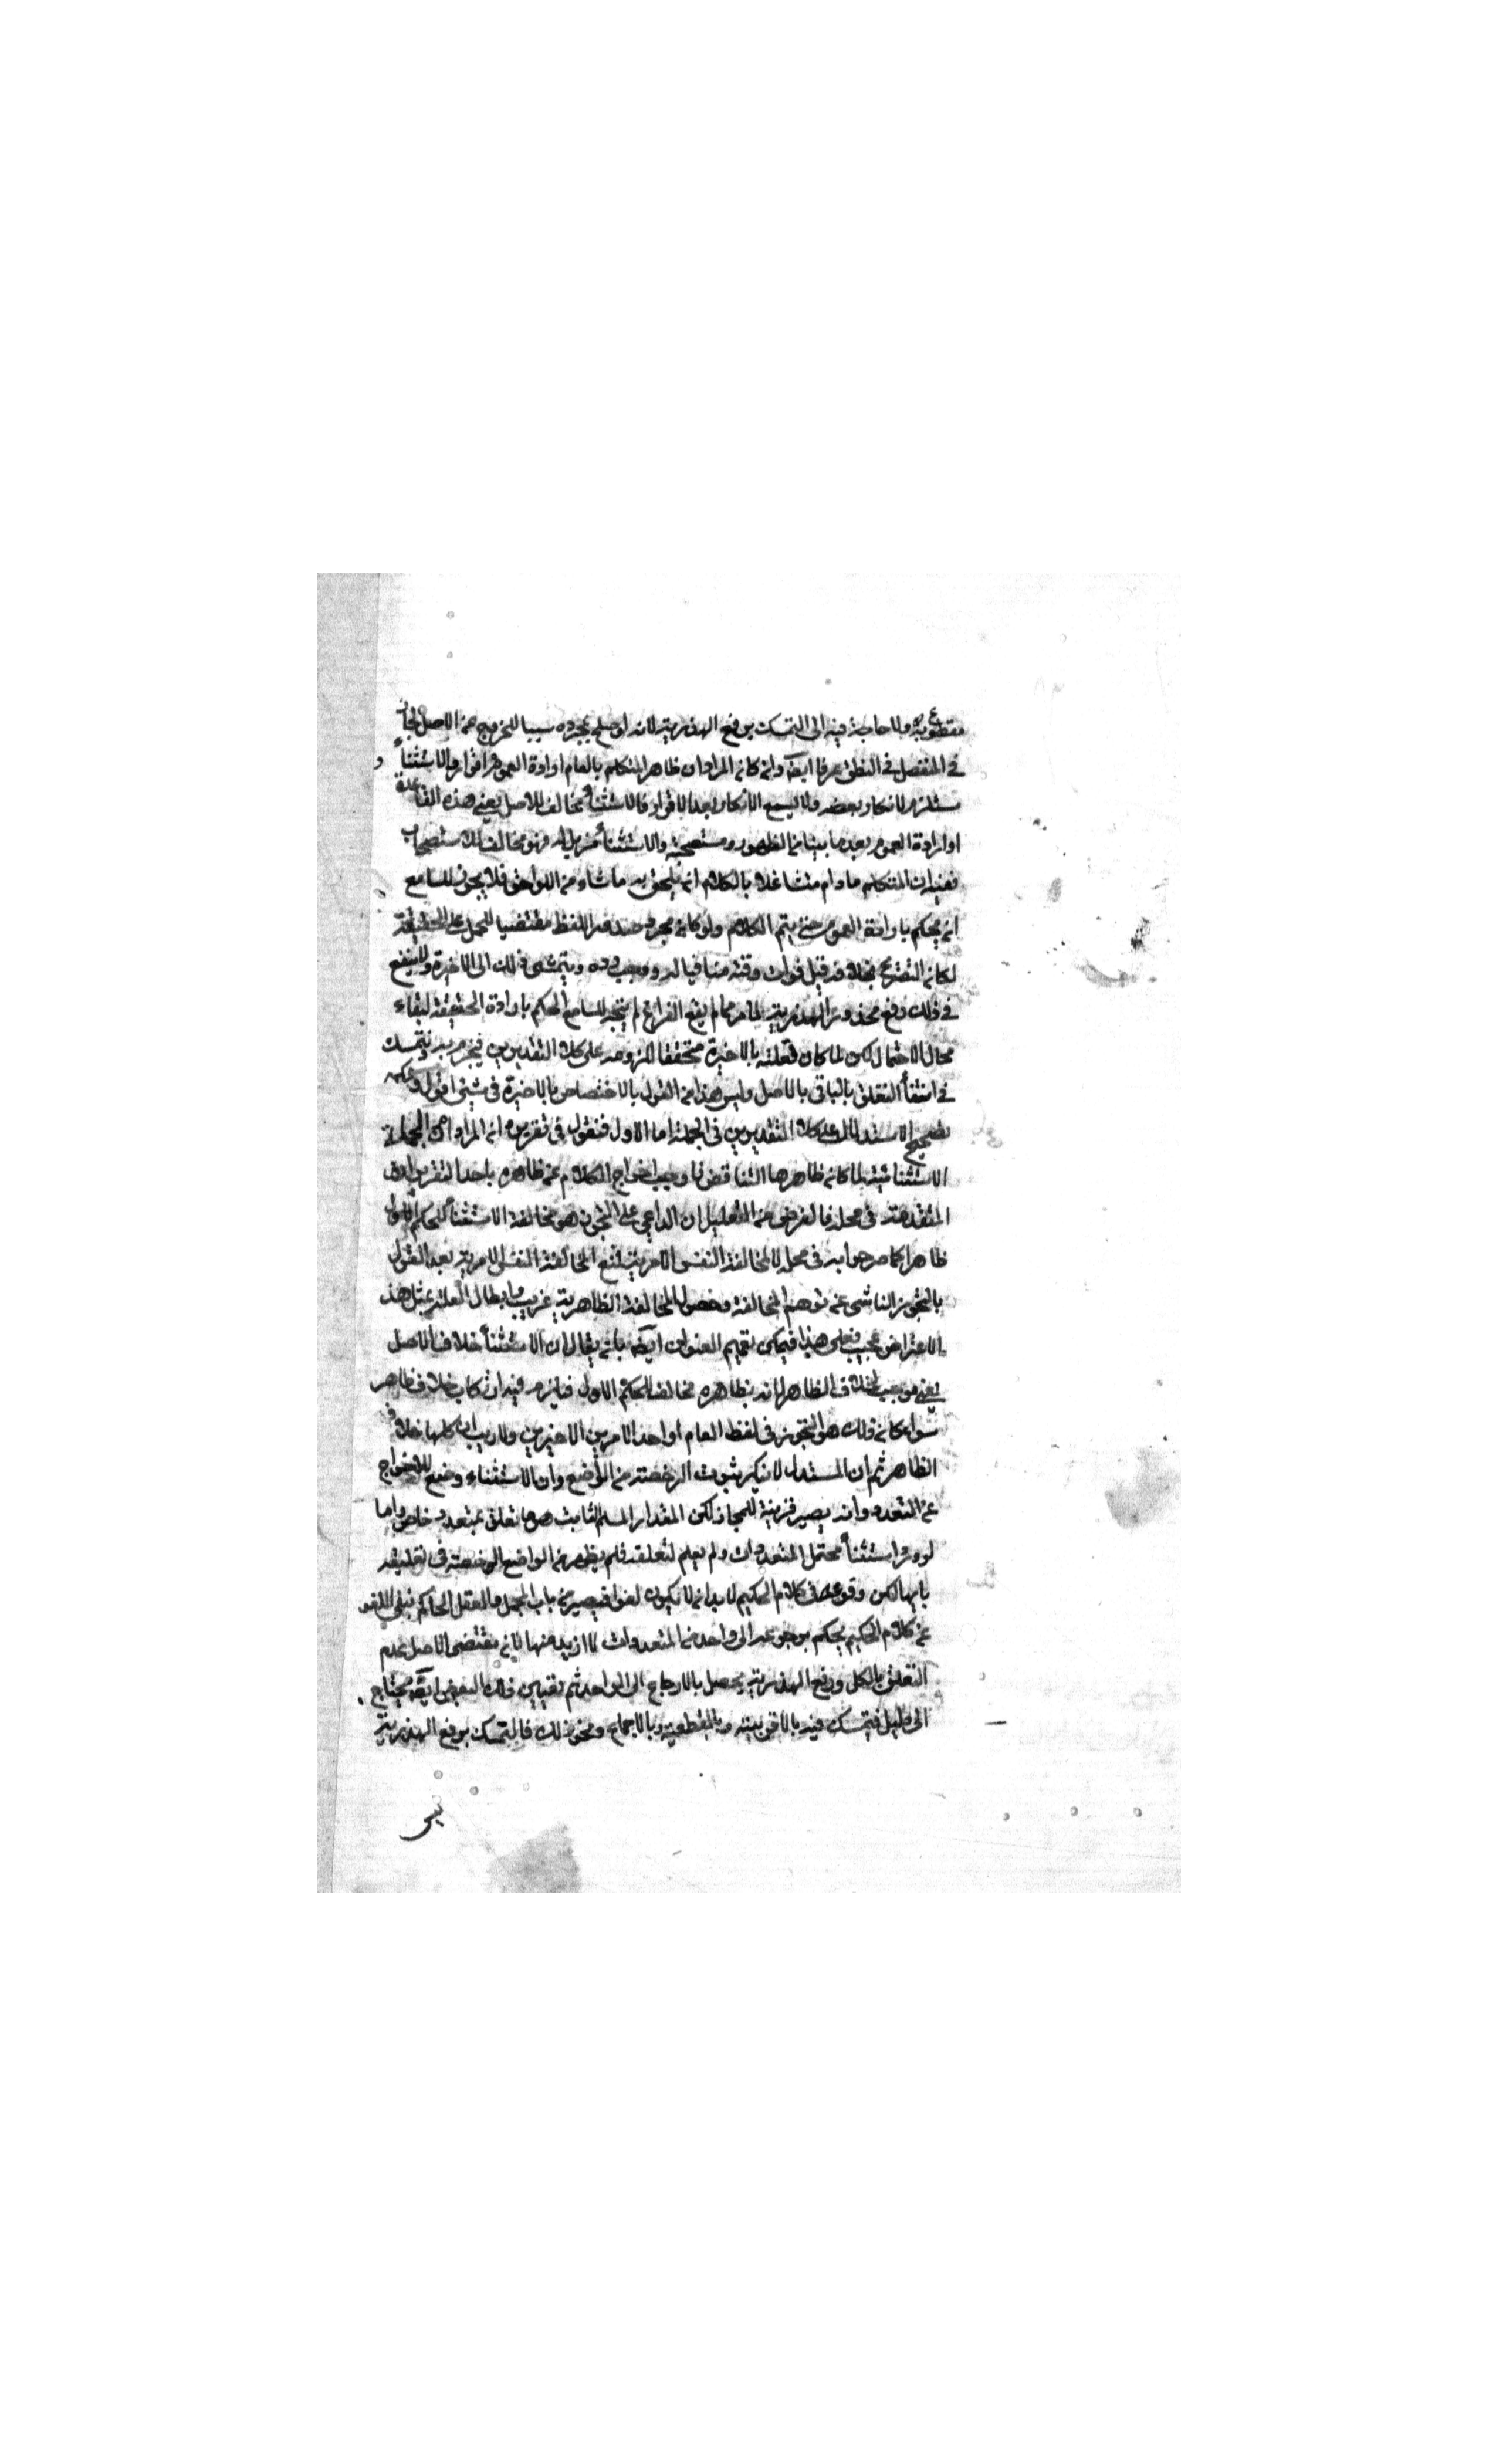 مقطوع به ولا حاجة فيه الى التمسك برفع الهذرية لانه لو صلح بمجرده سببا للخروج عن الاصل لجاز
في المنفصل في النطق عرفا ايضا وان كان المراد ان ظاهر المتكلم بالعام ارادة العموم فهو اقرار والاستثناء
مستلزم لانكار بعضه ولا يسمع الانكار بعد الاقرار فالاستثناء مخالف للاصل يعني هذه القاعدة
او ارادة العموم بعد ما بينا من الظهور مستصحبة والاستثناء مزيل له فهو مخالف للاستصحاب
ففيه ان المتكلم ما دام متشاغلا بالكلام ان يلحق به ما شاء من اللواحق فلا يجوز للسامع
ان يحكم بارادة العموم حتى يتم الكلام ولو كان مجرد صدور اللفظ مقتضيا للحمل على الحقيقة
لكان التصريح بخلافه قبل فوات وقته منافيا له ووجب رده ويتمشى ذلك الى الاخيرة ولا ينفع
في ذلك دفع محذور الهذرية لما مر فما لم يقع الفراغ لم يتجه للسامع الحكم بارادة الحقيقة لبقاء
مجال الاحتمال لكن لما كان تعلقه بالاخيرة متحققا للزومه على كلا التقديرين فيجزم به ويتمسك
في انتفاء التعلق بالباقي بالاصل وليس هذا من القول بالاختصاص بالاخيرة في شيء اقول ويمكن
تصحيح الاستدلال على كلا التقديرين في الجملة اما الاول فنقول في تقريره ان المراد ان الجملة
الاستثنائية لما كان ظاهرها التناقض فاوجب اخراج الكلام عن ظاهره باحد التقريرات
المتقدمة في محله فالغرض من التعليل ان الداعي على التجوز هو مخالفة الاستثناء للحكم الاول
ظاهرا كما صرحوا به في محله لا المخالفة النفس الامرية فمنع المخالفة النفس الامرية بعد القول
بالتجوز الناشي عن توهم المخالفة وحصول المخالفة الظاهرية غريب وابطال العلة بمثل هذا
الاعتراض عجيب فعلى هذا فيمكن تعميم العنوان ايضا بان يقال ان الاستثناء خلاف الاصل
يعني موجب لخلاف الظاهر لانه بظاهره مخالف للحكم الاول فيلزم فيه ارتكاب خلاف ظاهر
سواء كان ذلك هو التجوز في لفظ العام او احد الامرين الاخيرين ولا ريب ان كلها خلاف
الظاهر ثم ان المستدل لا ينكر ثبوت الرخصة من الواضع وان الاستثناء وضع للاخراج
عن المتعدد وانه يصير قرينة للمجاز لكن المقدار المسلم الثابت هو ما تعلق بمتعدد خاص واما
لو ورد استثناء محتمل المتعددات ولم يعلم لتعلقه فلم يظهر من الواضع الرخصة في تعليقه
بايها لكن وقوعه في كلام الحكيم لا بد ان لا يكون لغوا فيصير من باب المجمل والعقل الحاكم بنفي اللغو
عن كلام الحكيم يحكم برجوعه الى واحد من المتعددات لا ازيد منها لان مقتضى الاصل عدم
التعلق بالكل ورفع الهذرية يحصل بالارجاع الى الواحد ثم تعيين ذلك البعض ايضا محتاج
الى دليل فيتمسك فيه بالاقربية وبالقطعية وبالاجماع ونحو ذلك فالتمسك برفع الهذرية